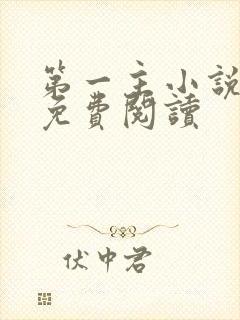 第一主小說
免費閱讀
伏中君